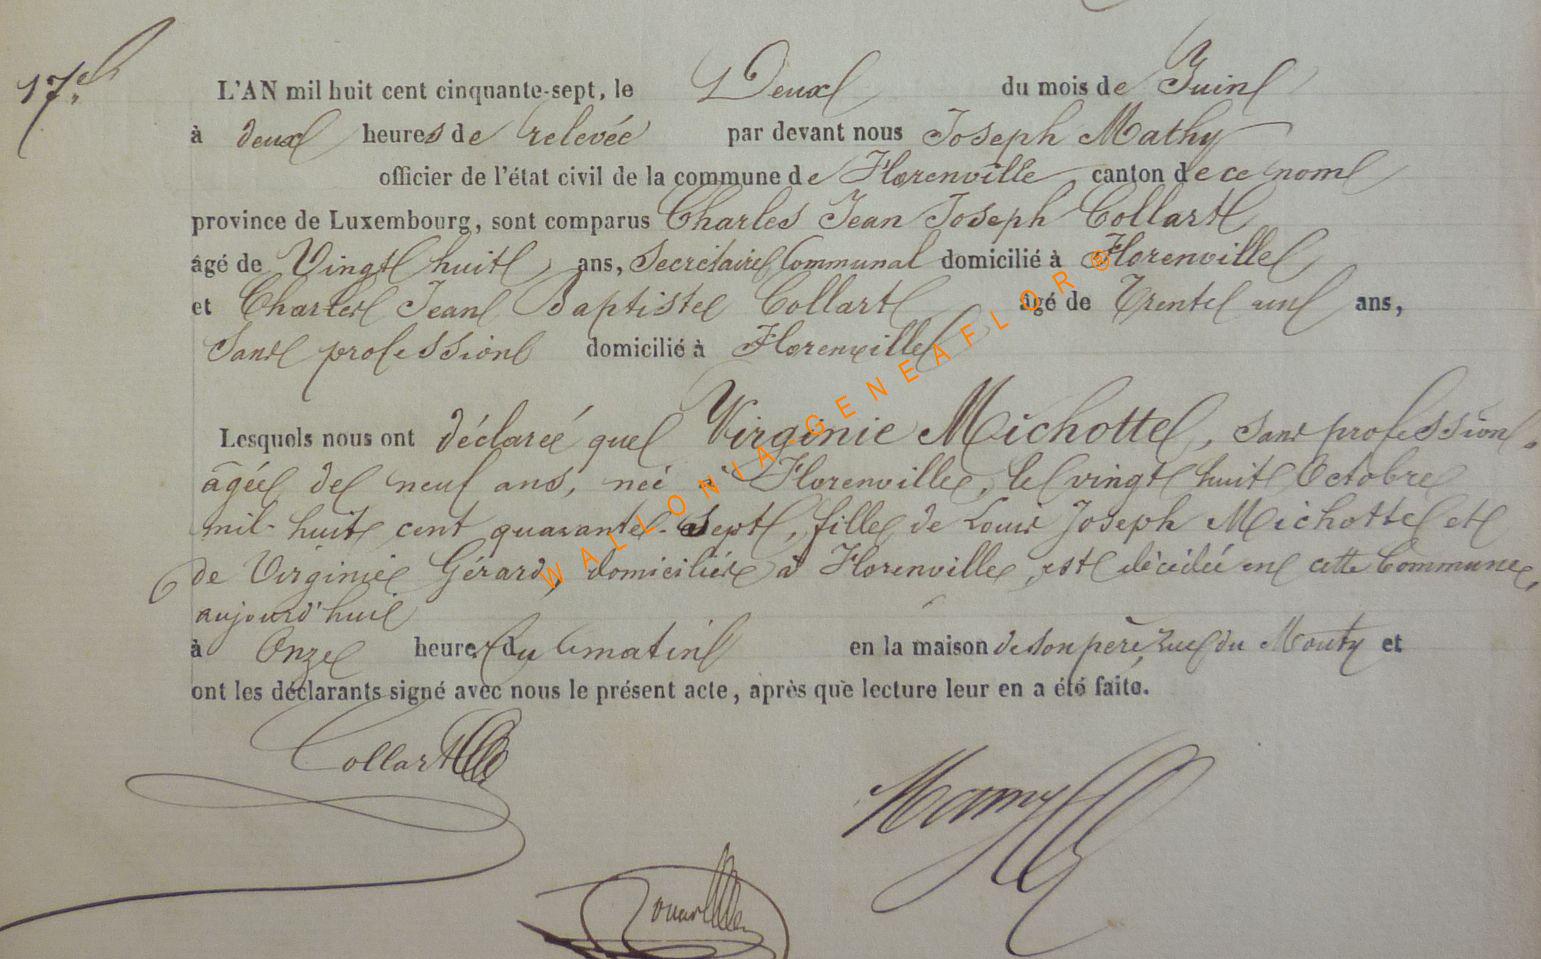 17e.
L'AN mil huit cent cinquante-sept, le Deux du mois de Juin
à deux heures de relevée par devant nous Joseph Mathy
officier de l'état civil de la commune de Florenville canton de ce nom
province de Luxembourg, sont comparus Charles Jean Joseph Collart
âgé de Vingt huit ans, Secrétaire Communal domicilié à Florenville
et Charles Jean Baptiste Collart âgé de Trente un ans,
Sans profession domicilié à Florenville
Lesquels nous ont déclaré que Virginie Michotte, sans profession,
agée de neuf ans, née à Florenville, le vingt huit Octobre
mil-huit cent quarante-sept, fille de Louis Joseph Michotte et
de Virginie Gérard, domiciliés à Florenville, est décédée en cette Commune,
aujourd'hui
à Onze heures du matin en la maison de son père, rue du Mouty et
ont les déclarants signé avec nous le présent acte, après que lecture leur en a été faite.
Collart
WALLONIA-GENEAFLORE